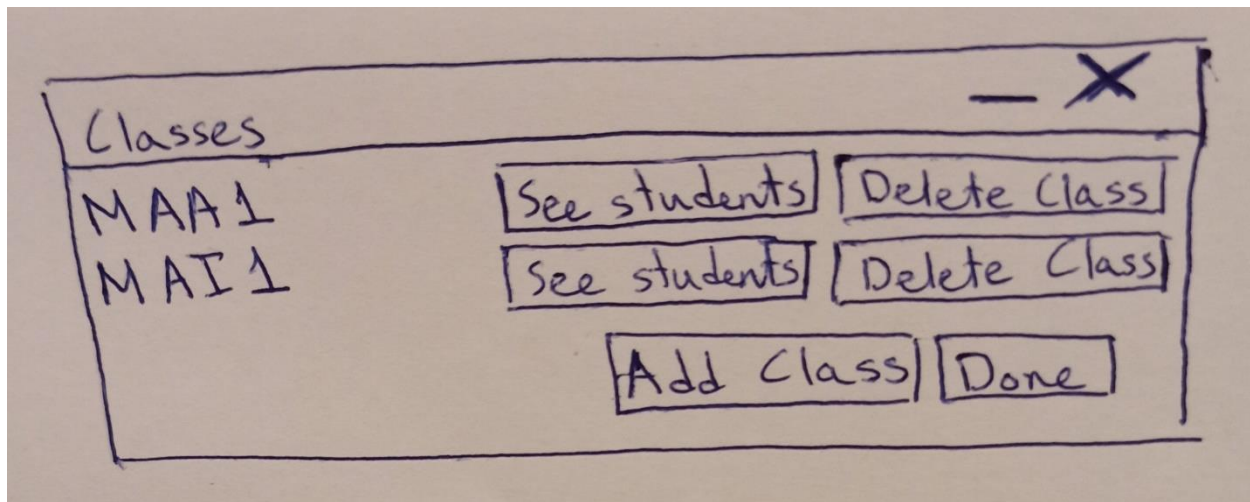 Classes
MAA1 See students Delete Class
MAI1 See students Delete Class
Add Class Done